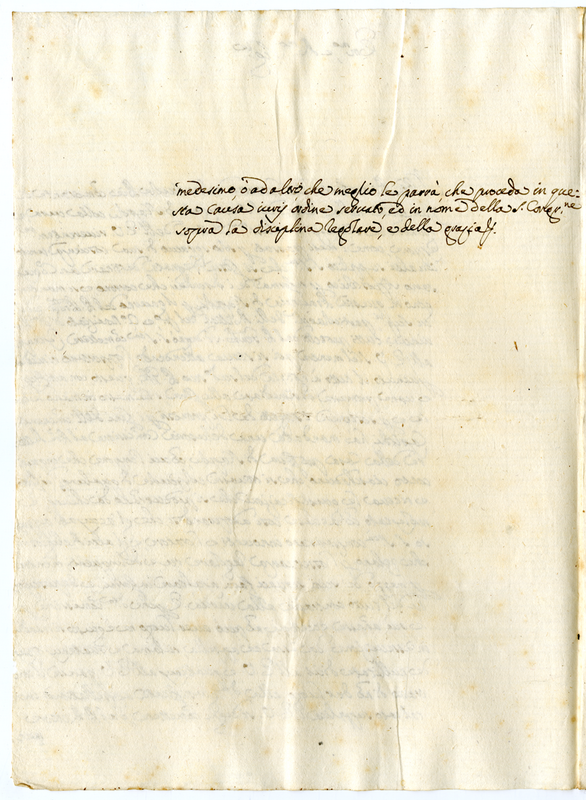 medesimo ò ad altro che meglio le parrà che proceda in que:
sta causa iuris ordine servato, ed in nome della S. Congr.ne
sopra la disciplina regolare, e della grazia